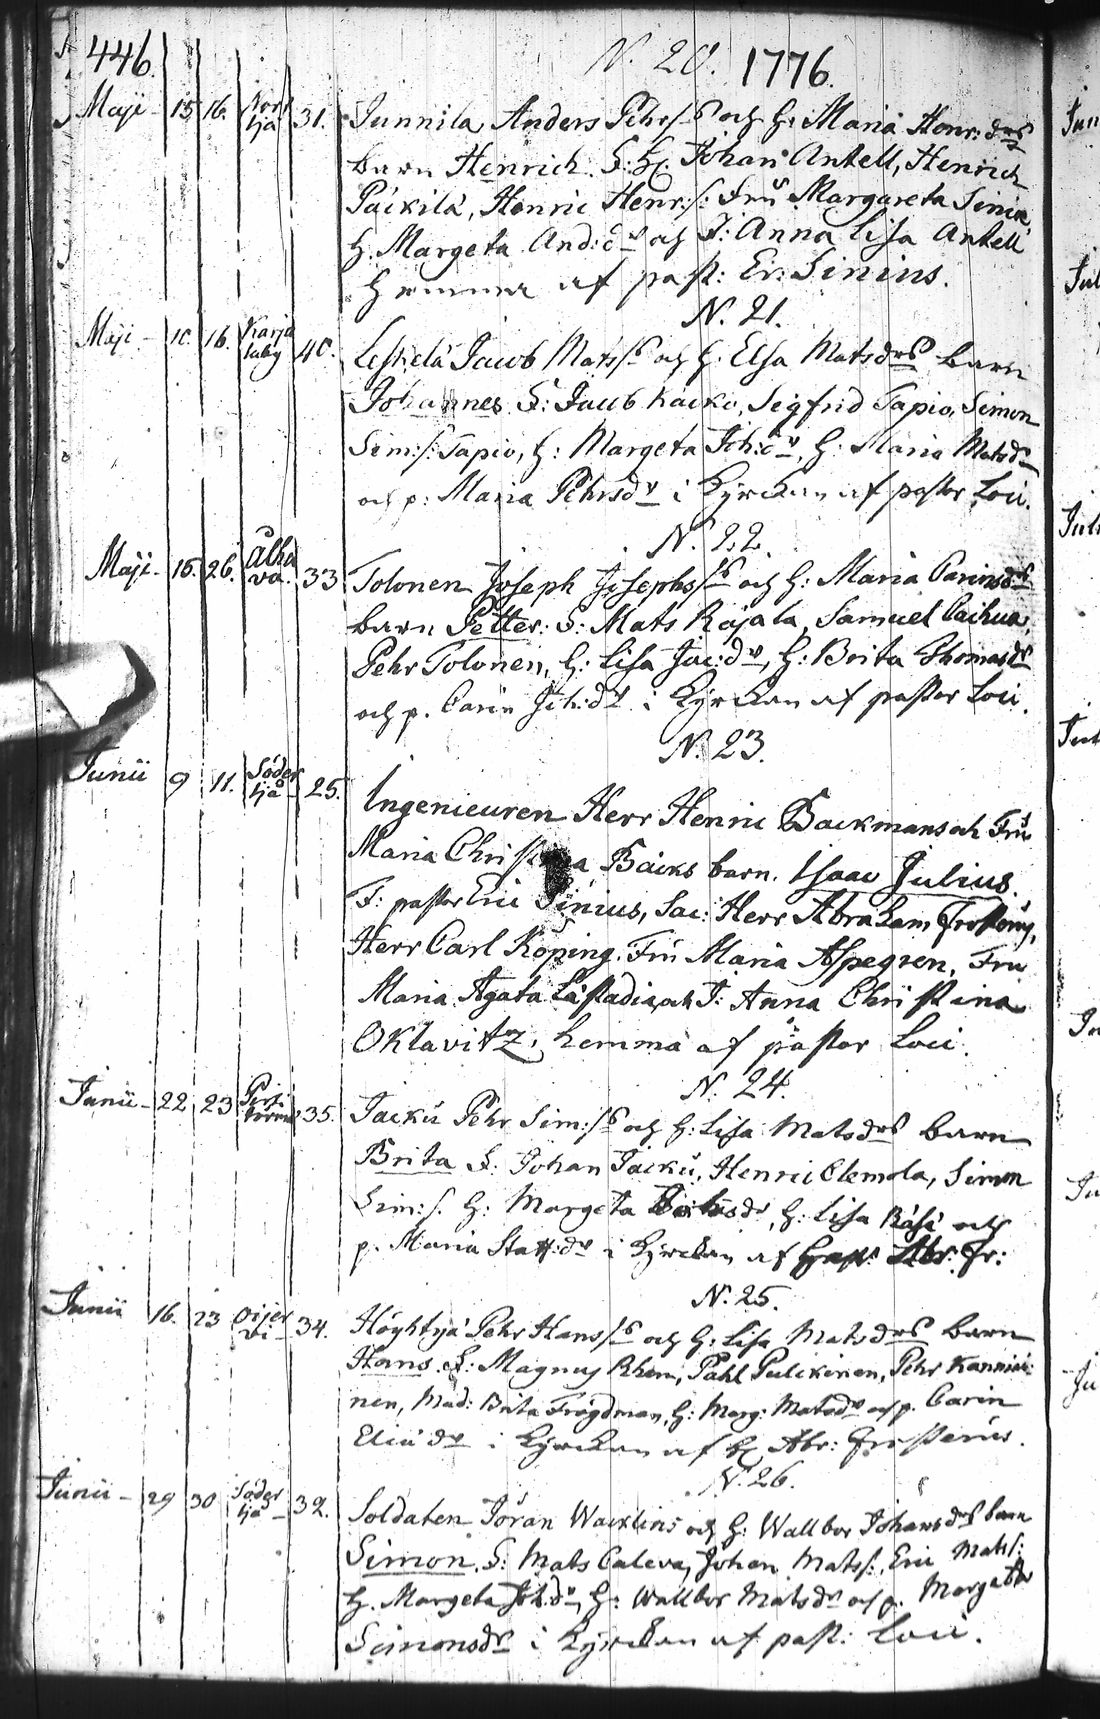 446.
N. 20. 1776.
Maji - 15 16. Norr tjå 31. Junnila Anders Pehrs/s och H: Maria Henr: drs
barn Henrich. F: H. Johan Antell, Henrich
Päckilä, Henric Henr:s: Fru Margareta Sinia,
H. Margeta And:dr och J: Anna Lisa Antell
hemma af past: Er: Sinius.
N. 21.
Maji - 10. 16. Karja laby 40. Leskelä Jacob Mats/s och H: Elsa Matsdrs barn
Johannes. F: Jacob Kacko, Segfrid Tapio, Simon
Sim:s: Tapio, H: Margeta Joh:dr, H: Maria Matsdr
och p: Maria Pehrsdr i Kyrckan af pastor Loci.
N. 22.
Maji - 15. 26. Alha va. 33 Tolonen Joseph Josephs/s och H: Maria Carinsdrs
barn Petter: F: Mats Rajala, Samuel
Pehr Tolonen, H: Lisa Jac:dr, H: Brita Thomasdr
och p. Carin Joh:dr i Kyrckan af pastor Loci.
N. 23.
Junii 9 11. Söder tjå 25. Ingenieuren Herr Henric Backmans och Fru
Maria Christina Bäcks barn. Isaac Julius.
F: pastor Eric Sinius, Sac: Herr Abraham Frosterus,
Herr Carl Köping. Fru Maria Aspegren, Fru
Maria Agata Lästadia, och J: Anna Christina
Oktavitz, hemma af pastor Loci.
N. 24.
Junii - 22 23 35. Jacku Pehr Sim:/s och H: Lisa Matsdrs barn
Brita F: Johan Jacku, Henric Clemola, Simon
Sim:s. H: Margeta H: Lisa Räsi och
p. Maria Staff:dr i Kyrckan af Abr: Fr:
N. 25.
Junii 16. 23 Oijer vi - 34. Höyhtyä Pehr Hans/s och H: Lisa Matsdrs barn
Hans. F: Magnus Rhen, Pahl Pulckinen, Pehr Kanniai
nen, Mad: Brita Frogdman, H: Marg: Matsdr och p. Carin
Elia dr i Kyrckan af H Abr: Frosterus.
N. 26.
Junii - 29 30 Söder tjå - 32. Soldaten Jöran Wacklins och H: Wallbor Johansdrs barn
Simon. F: Mats Caleva, Johan Mats/:, Eric Mats/:
H. Margeta Joh:dr, H: Wallbor Matsdr och p. Margeta
Simonsdr i Kyrckan af past: Loci.